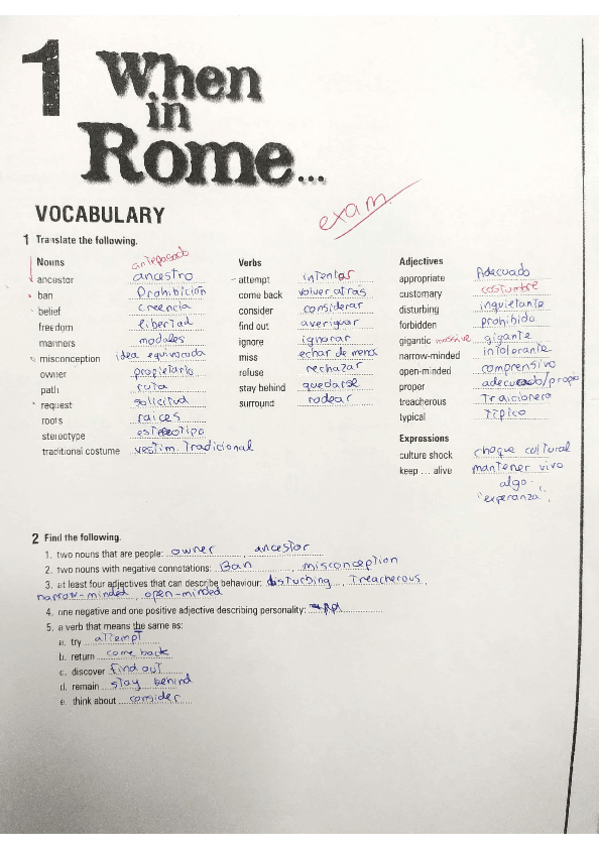 1 When
in
Rome...
exam
VOCABULARY
1 Translate the following.
Nouns
antepasado
ancestor ancestro
ban Prohibición
belief creencia
freedom libertad
manners modales
misconception idea equivocada
owner propietario
path ruta
request solicitud
roots raices
stereotype estereotipo
traditional costume vestim. Tradicional
Verbs
attempt intentar
come back volver atrás
consider considerar
find out averiguar
ignore ignorar
miss echar de menos
refuse rechazar
stay behind quedarse
surround rodear
Adjectives
appropriate Adecuado
customary costumbre
disturbing inquietante
forbidden prohibido
gigantic massive gigante
narrow-minded intolerante
open-minded comprensivo
proper adecuado/propio
treacherous Traicionero
typical Típico
Expressions
culture shock choque cultural
keep ... alive mantener vivo
algo.
"esperanza".
2 Find the following.
1. two nouns that are people: owner, ancestor
2. two nouns with negative connotations: Ban, misconception
3. at least four adjectives that can describe behaviour: disturbing, Treacherous,
narrow-minded, open-minded
4. one negative and one positive adjective describing personality:
5. a verb that means the same as:
a. try attempt
b. return come back
c. discover find out
d. remain stay behind
e. think about consider